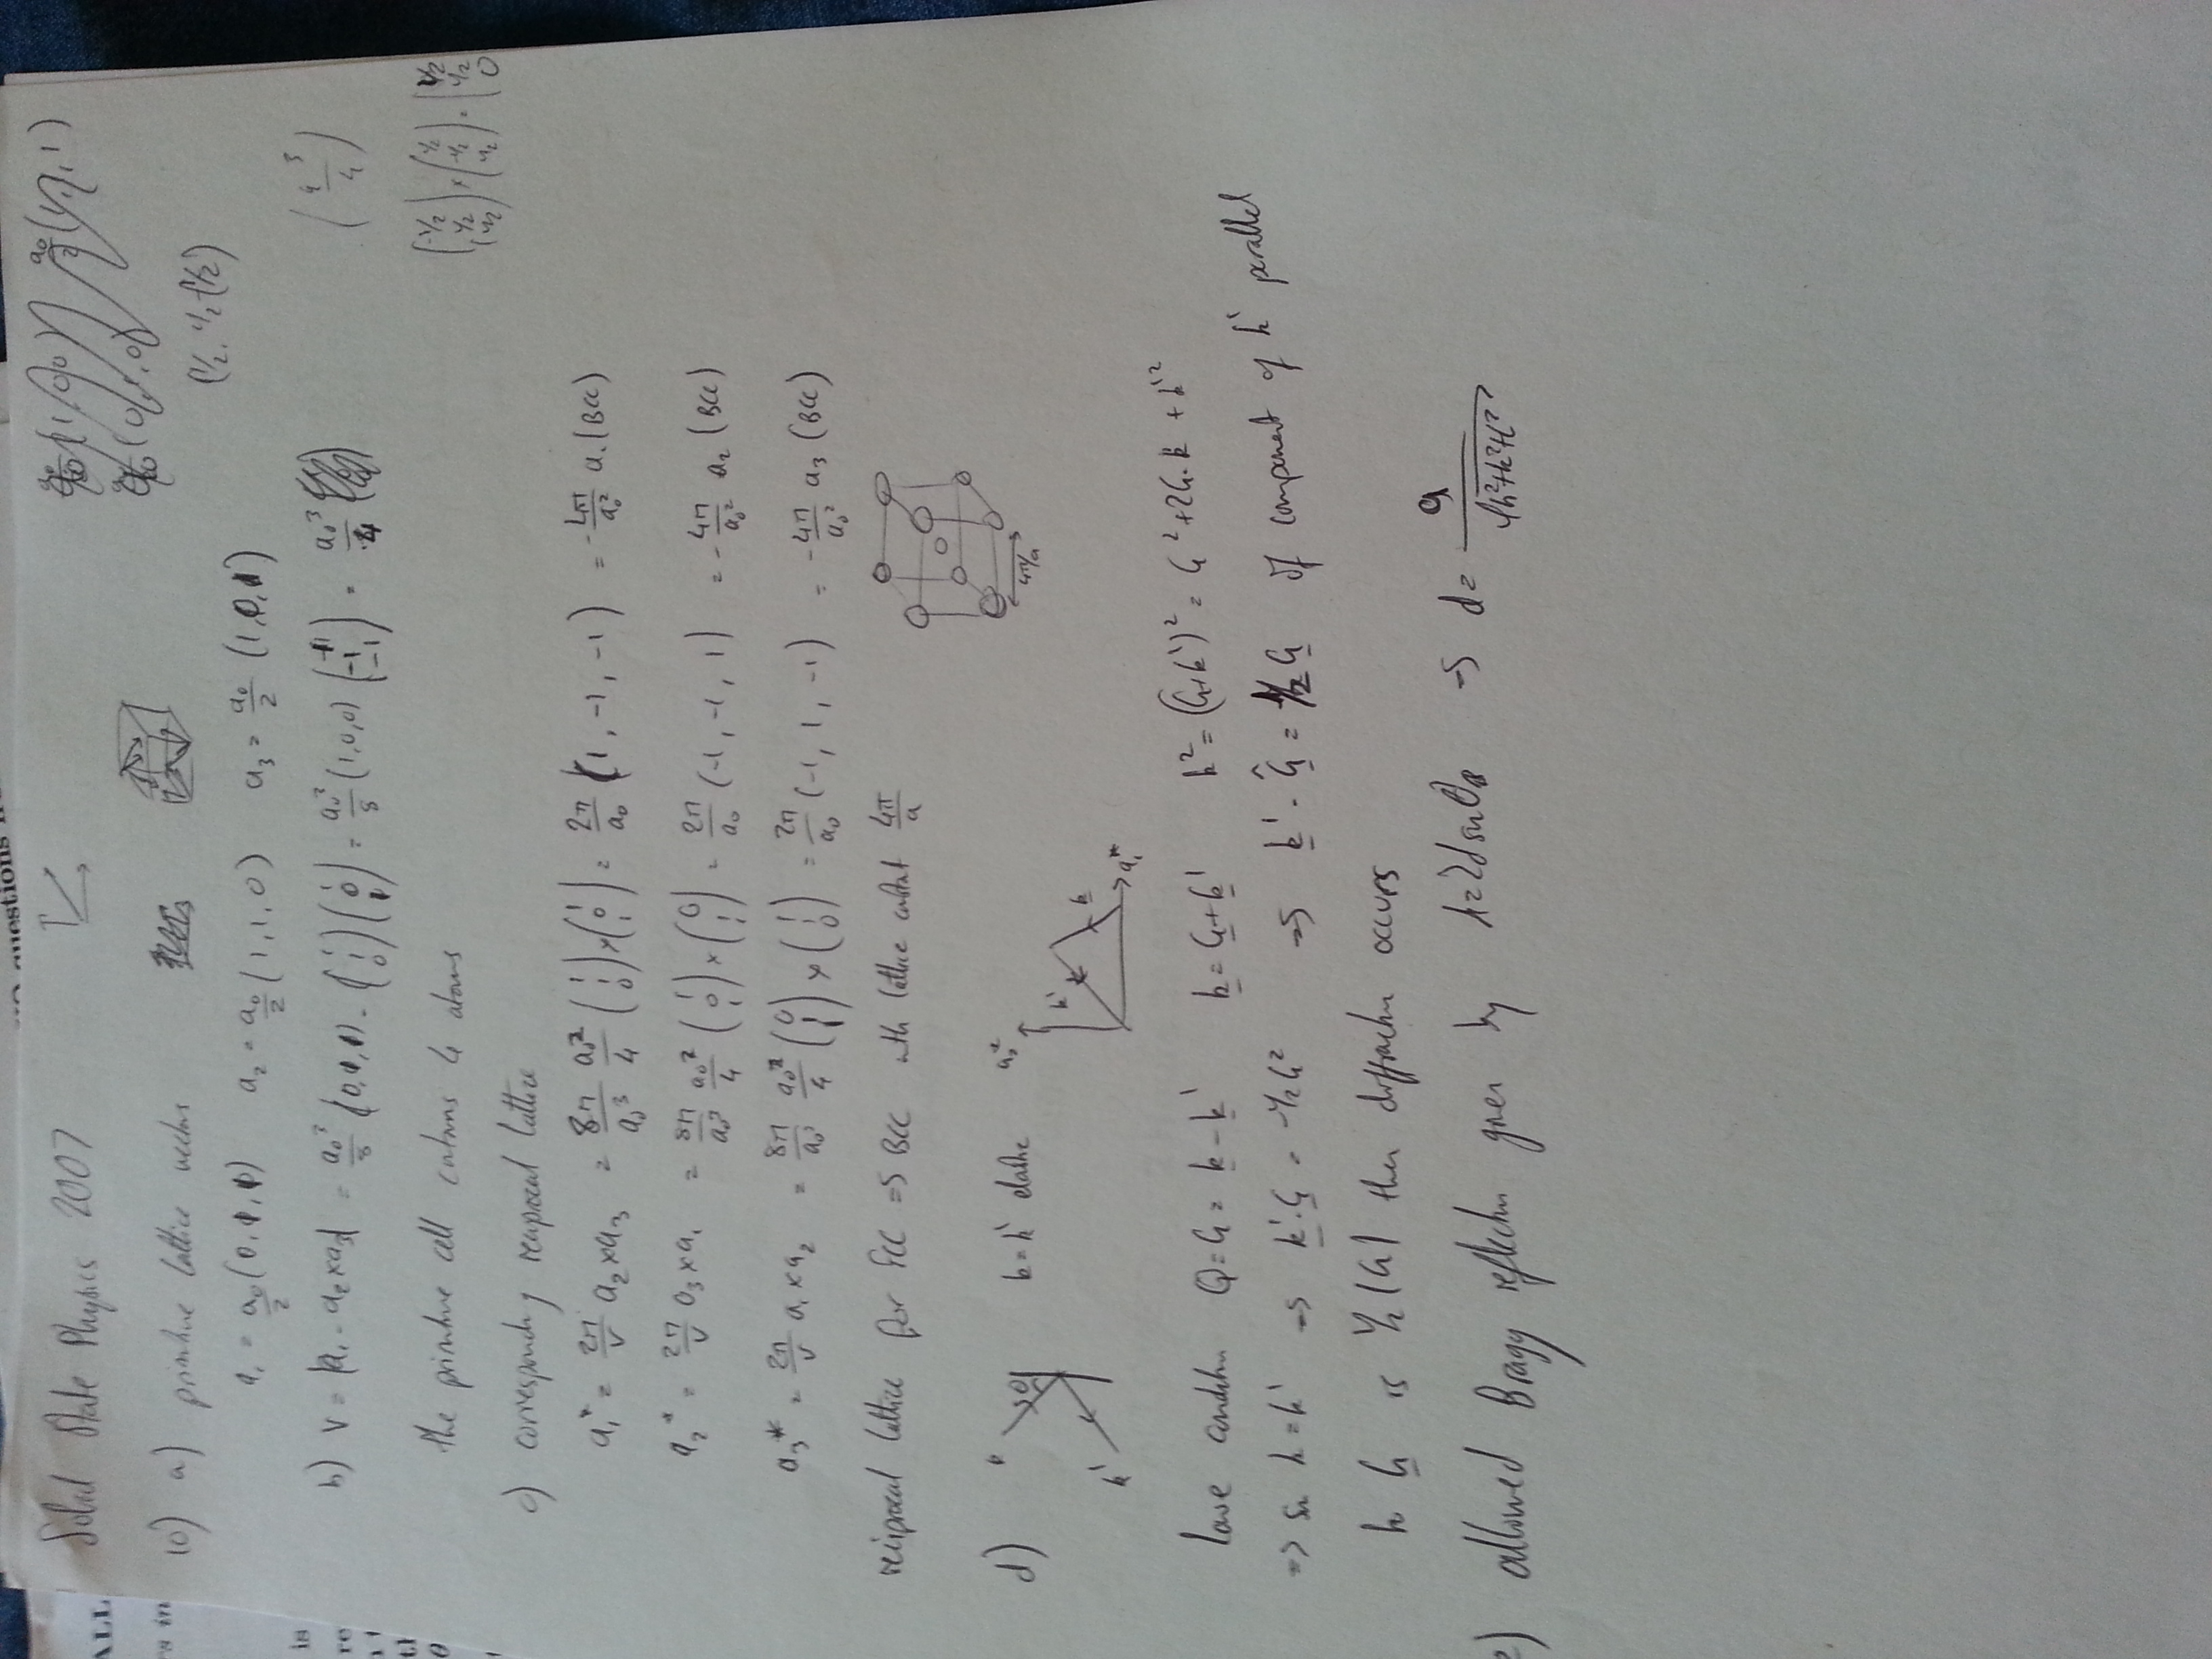 questions
ALL
Solid State Physics 2007
10) a) primitive lattice vectors
(1/2, 1/2, 1/2)
a₁ = a₀/2 (0,1,1) a₂ = a₀/2 (1,1,0) a₃ = a₀/2 (1,0,1)
b) V = |a₁ · a₂×a₃| = a₀³/8 (0,1,1) · (1 1 0)(1 0 1) = a₀³/8 (1,0,0) (1 -1 -1) = a₀³/4
(a³/4)
the primitive cell contains 4 atoms
(-1/2 1/2 1/2) × (1/2 -1/2 1/2) = (1/2 1/2 0)
c) corresponding reciprocal lattice
a₁* = 2π/V a₂×a₃ = 8π/a₀³ a₀²/4 (1 1 0)×(1 0 1) = 2π/a₀ (1, -1, -1) = -4π/a₀² a₁ (BCC)
a₂* = 2π/V a₃×a₁ = 8π/a₀³ a₀²/4 (1 0 1)×(0 1 1) = 2π/a₀ (-1, -1, 1) = -4π/a₀² a₂ (BCC)
a₃* = 2π/V a₁×a₂ = 8π/a₀³ a₀²/4 (0 1 1)×(1 1 0) = 2π/a₀ (-1, 1, -1) = -4π/a₀² a₃ (BCC)
reciprocal lattice for FCC => BCC with lattice constant 4π/a
4π/a
d) θ k' k = k' elastic a₂* k' k a₁*
Laue condition Q = G = k - k' k = G + k' k² = (G+k')² = G² + 2G·k + k'²
=> so k = k' => k'·G = -1/2G² => k'·Ĝ = 1/2 G if component of k' parallel
to G is 1/2 |G| then diffraction occurs
e) allowed Bragg reflection given by λ=2d sinθB => d = a/√(h²+k²+l²)